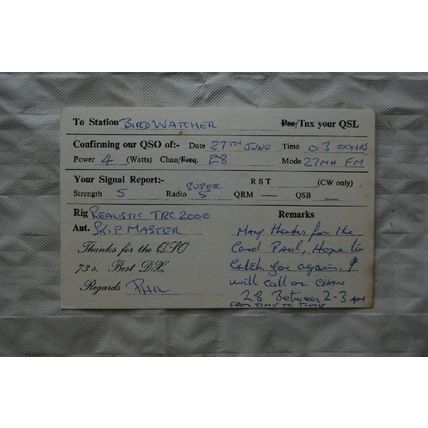 To Station BIRDWATCHER Pse/Tnx your QSL
Confirming our QSO of:- Date 27TH JUNE Time 03 00HRS
Power 4 (Watts) Chan/Freq. 28 Mode 27MH FM
Your Signal Report:- R S T (CW only)
Strength 5 Radio SUPER 5 QRM — QSB —
Rig REALISTIC TRC 2000 Remarks
Ant. SKIP MASTER Many thanks for the
Thanks for the QSO Card Paul, Hope to
73s. Best DX, Catch you again, I
Regards PHIL will call on CHAN
28 Between 2-3 AM
FROM TIME TO TIME